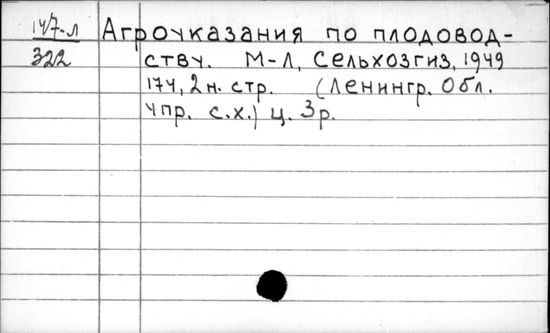 147-л
322
Агроуказания по плодовод-
ству. М-Л, Сельхозгиз, 1949
174, 2 н. стр. (Ленингр. Обл.
упр. с.х.) ц. 3 р.